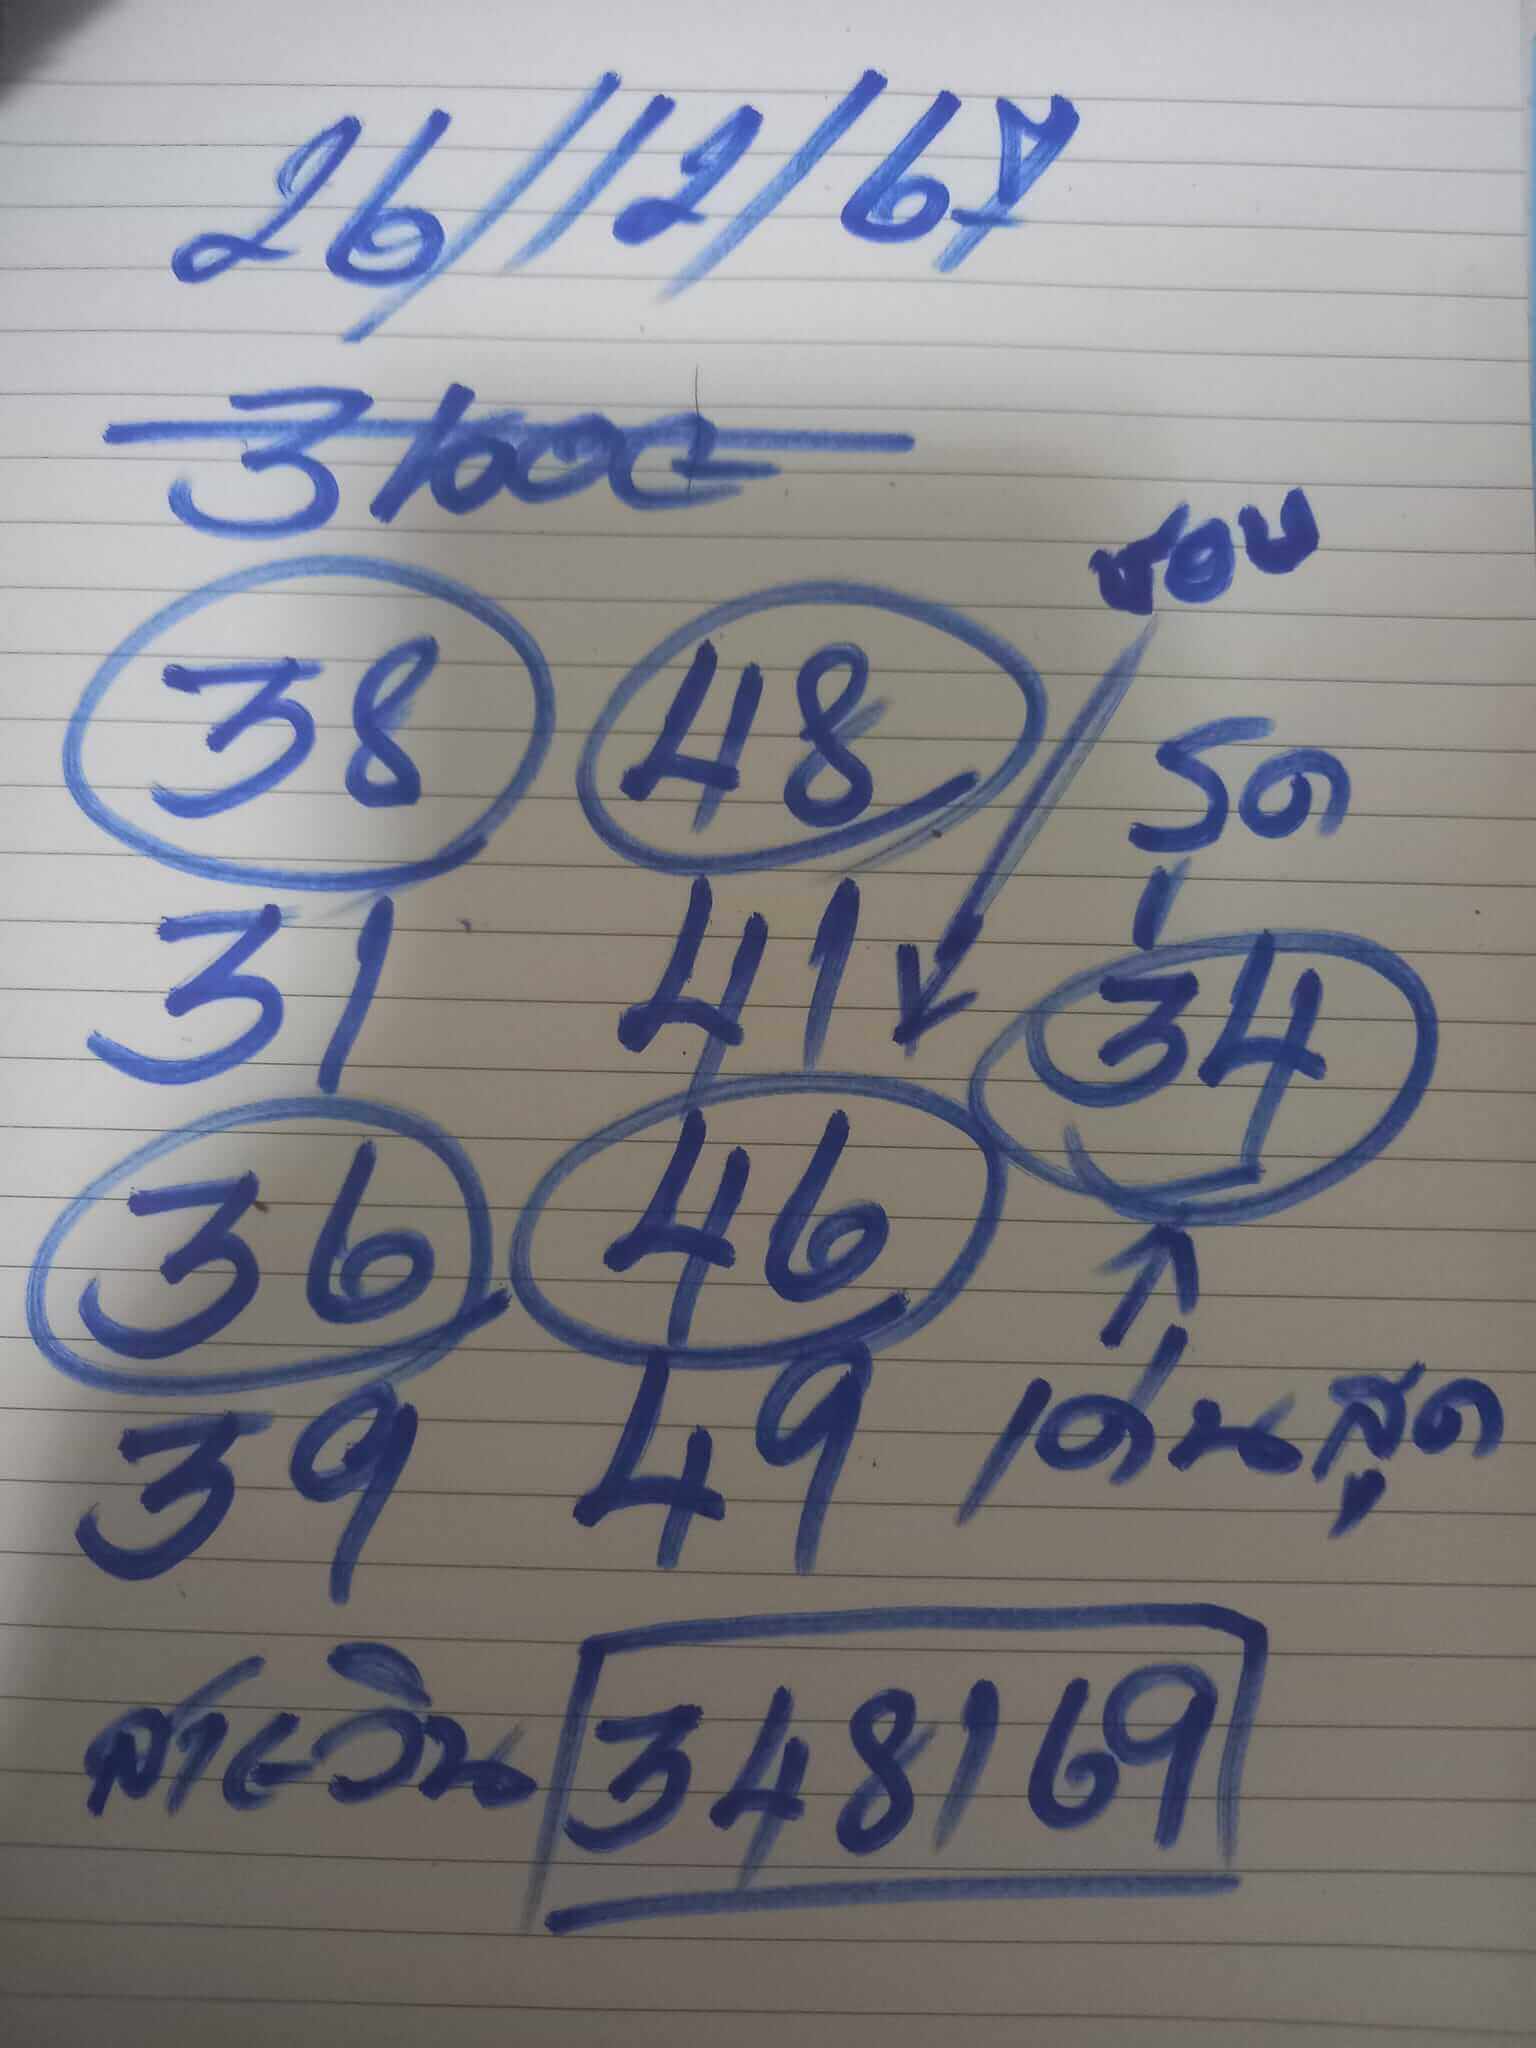 26/12/67
ชอบ
38 48
รูด
31 41
34
36 46
39 49
เด่นสุด
สายวิน 348169